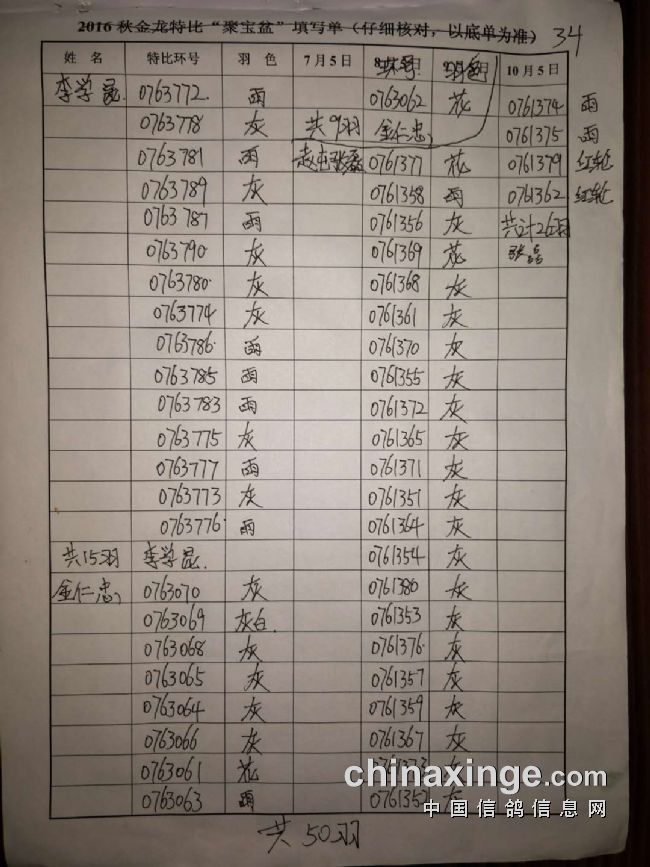 2016 秋金龙特比“聚宝盆”填写单（仔细核对，以底单为准） 34
姓 名 特比环号 羽 色 7月5日 环号 羽色 10月5日
李学昆 0763772 雨 0763062 花 0761374 雨
0763778 灰 共9羽 金仁忠 0761375 雨
0763781 雨 张磊 0761377 花 0761379 红轮
0763789 灰 0761358 雨 0761362 红轮
0763787 雨 0761356 灰 共计26羽
0763790 灰 0761369 花 张磊
0763780 灰 0761368 灰
0763774 灰 0761361 灰
0763786 雨 0761370 灰
0763785 雨 0761355 灰
0763783 雨 0761372 灰
0763775 灰 0761365 灰
0763777 雨 0761371 灰
0763773 灰 0761351 灰
0763776 雨 0761364 灰
共15羽 李学昆 0761354 灰
金仁忠 0763070 灰 0761380 灰
0763069 灰白 0761353 灰
0763068 灰 0761376 灰
0763065 灰 0761357 灰
0763064 灰 0761359 灰
0763066 灰 0761367 灰
0763061 花
0763063 雨
chinaxinge.com
中国信鸽信息网
共50羽